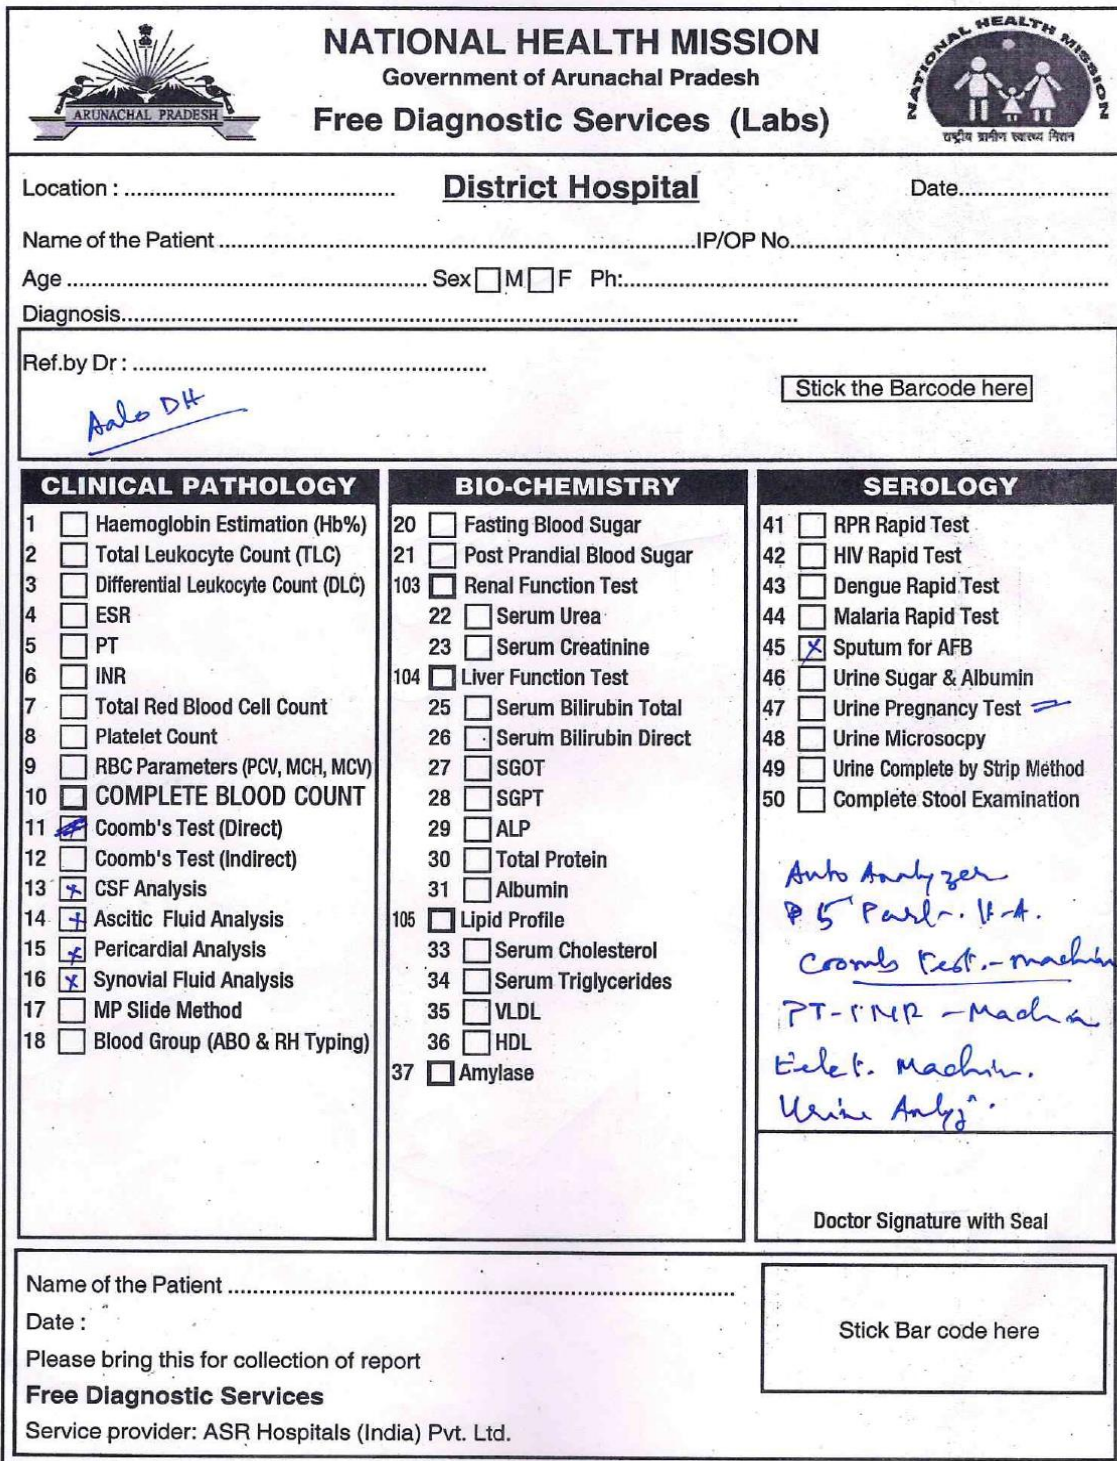 NATIONAL HEALTH MISSION
Government of Arunachal Pradesh
Free Diagnostic Services (Labs)
ARUNACHAL PRADESH
NATIONAL HEALTH MISSION
राष्ट्रीय ग्रामीण स्वास्थ्य मिशन
Location : ...................................... District Hospital Date......................
Name of the Patient ....................................................................IP/OP No.............................................
Age .................................................... Sex M F Ph:.....................................................................
Diagnosis.................................................................................................
Ref.by Dr : ..................................................
Stick the Barcode here
Aalo DH
CLINICAL PATHOLOGY
1 Haemoglobin Estimation (Hb%)
2 Total Leukocyte Count (TLC)
3 Differential Leukocyte Count (DLC)
4 ESR
5 PT
6 INR
7 Total Red Blood Cell Count
8 Platelet Count
9 RBC Parameters (PCV, MCH, MCV)
10 COMPLETE BLOOD COUNT
11 Coomb's Test (Direct)
12 Coomb's Test (Indirect)
13 x CSF Analysis
14 x Ascitic Fluid Analysis
15 x Pericardial Analysis
16 x Synovial Fluid Analysis
17 MP Slide Method
18 Blood Group (ABO & RH Typing)
BIO-CHEMISTRY
20 Fasting Blood Sugar
21 Post Prandial Blood Sugar
103 Renal Function Test
22 Serum Urea
23 Serum Creatinine
104 Liver Function Test
25 Serum Bilirubin Total
26 Serum Bilirubin Direct
27 SGOT
28 SGPT
29 ALP
30 Total Protein
31 Albumin
105 Lipid Profile
33 Serum Cholesterol
34 Serum Triglycerides
35 VLDL
36 HDL
37 Amylase
SEROLOGY
41 RPR Rapid Test
42 HIV Rapid Test
43 Dengue Rapid Test
44 Malaria Rapid Test
45 x Sputum for AFB
46 Urine Sugar & Albumin
47 Urine Pregnancy Test
48 Urine Microsocpy
49 Urine Complete by Strip Method
50 Complete Stool Examination
Auto Analyzer
5 Part
Coombs Test.-machin
PT-INR - Machin
Machin.
Urine
Doctor Signature with Seal
Name of the Patient ........................................................................
Date :
Stick Bar code here
Please bring this for collection of report
Free Diagnostic Services
Service provider: ASR Hospitals (India) Pvt. Ltd.